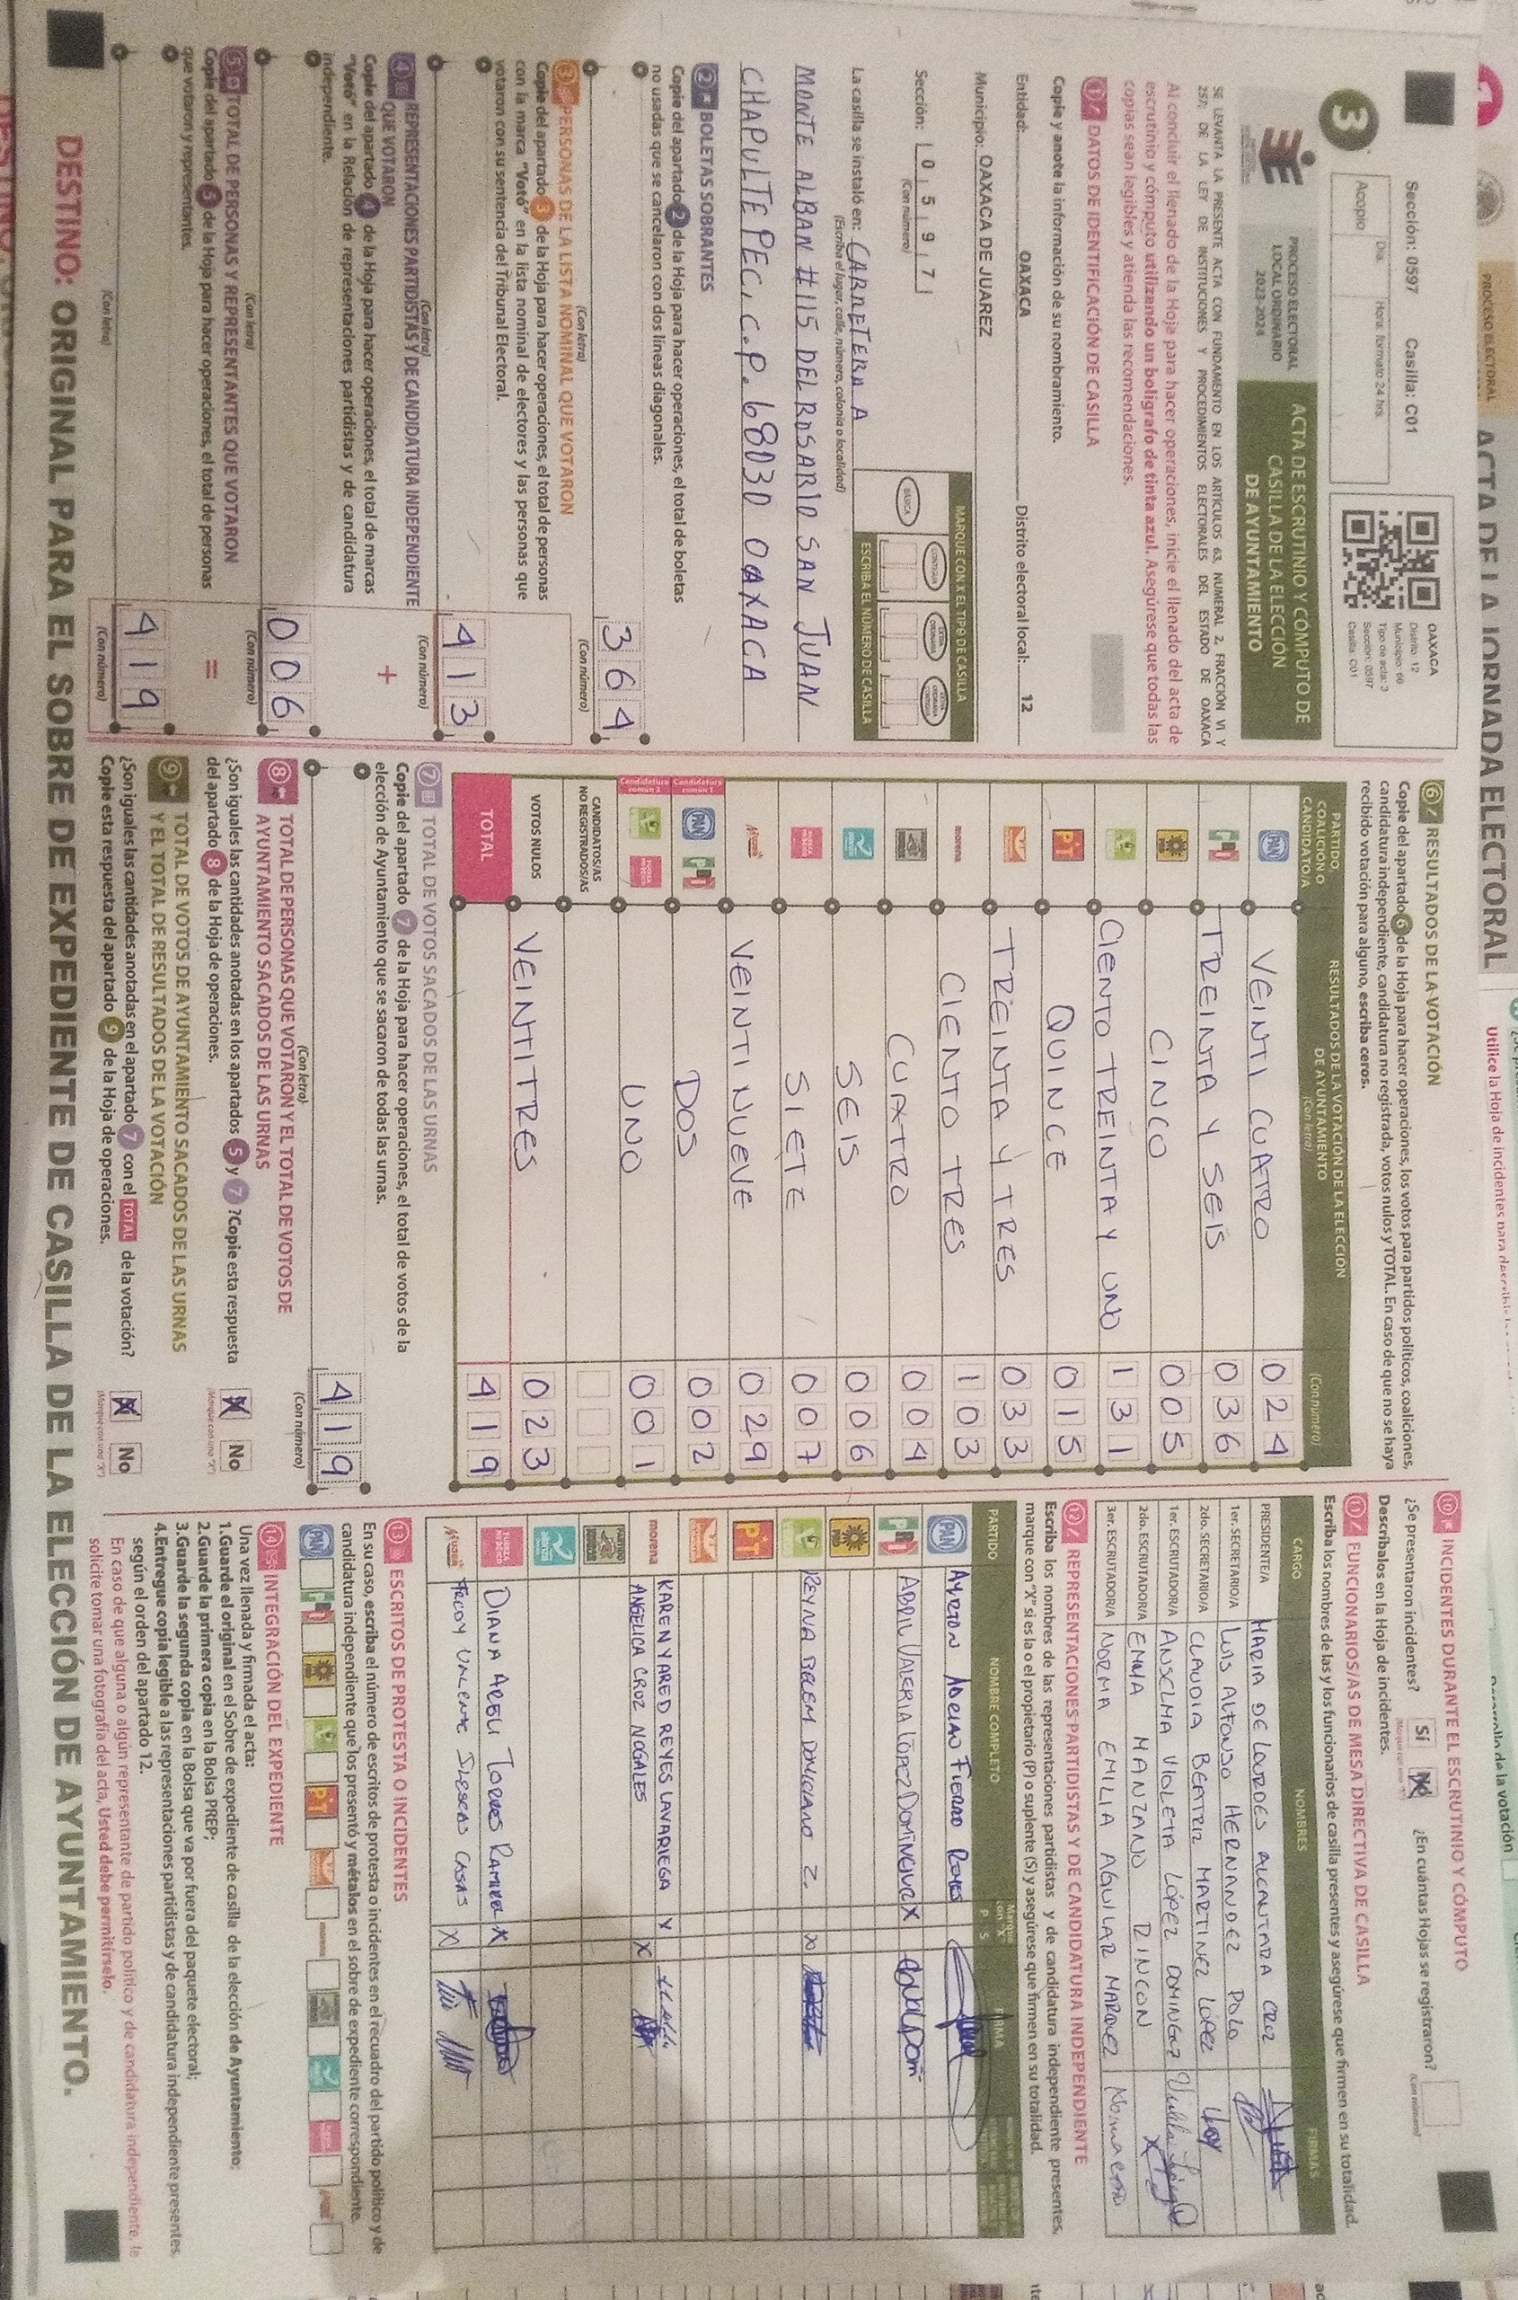 PROCESO ELECTORAL
ACTA DE LA JORNADA ELECTORAL
Utilice la Hoja de incidentes para describir
Desarrollo de la votación
Sección: 0597 Casilla: C01
Día: Hora: formato 24 hrs.
Acopio
OAXACA
Distrito: 12
Municipio: 66
Tipo de acta: 3
Sección: 0597
Casilla: C01
3
PROCESO ELECTORAL
LOCAL ORDINARIO
2023-2024
ACTA DE ESCRUTINIO Y CÓMPUTO DE
CASILLA DE LA ELECCIÓN
DE AYUNTAMIENTO
SE LEVANTA LA PRESENTE ACTA CON FUNDAMENTO EN LOS ARTÍCULOS 63, NUMERAL 2, FRACCIÓN VI Y
257; DE LA LEY DE INSTITUCIONES Y PROCEDIMIENTOS ELECTORALES DEL ESTADO DE OAXACA
Al concluir el llenado de la Hoja para hacer operaciones, inicie el llenado del acta de
escrutinio y cómputo utilizando un bolígrafo de tinta azul. Asegúrese que todas las
copias sean legibles y atienda las recomendaciones.
1 DATOS DE IDENTIFICACIÓN DE CASILLA
Copie y anote la información de su nombramiento.
Entidad: OAXACA Distrito electoral local: 12
Municipio: OAXACA DE JUAREZ
Sección: 0 5 9 7
(Con número)
MARQUE CON X EL TIPO DE CASILLA
BÁSICA
CONTIGUA
ESCRIBA EL NÚMERO DE CASILLA
La casilla se instaló en: CARRETERA A
(Escriba el lugar, calle, número, colonia o localidad)
MONTE ALBAN #115 DEL ROSARIO SAN JUAN
CHAPULTEPEC, C.P. 68030 OAXACA
2 BOLETAS SOBRANTES
Copie del apartado 2 de la Hoja para hacer operaciones, el total de boletas
no usadas que se cancelaron con dos líneas diagonales.
364
(Con letra) (Con número)
3 PERSONAS DE LA LISTA NOMINAL QUE VOTARON
Copie del apartado 3 de la Hoja para hacer operaciones, el total de personas
con la marca "Votó" en la lista nominal de electores y las personas que
votaron con su sentencia del Tribunal Electoral.
413
(Con letra) (Con número)
4 REPRESENTACIONES PARTIDISTAS Y DE CANDIDATURA INDEPENDIENTE
QUE VOTARON
+
Copie del apartado 4 de la Hoja para hacer operaciones, el total de marcas
"Votó" en la Relación de representaciones partidistas y de candidatura
independiente.
006
(Con letra) (Con número)
5 TOTAL DE PERSONAS Y REPRESENTANTES QUE VOTARON
=
Copie del apartado 5 de la Hoja para hacer operaciones, el total de personas
que votaron y representantes.
419
(Con letra) (Con número)
6 RESULTADOS DE LA VOTACIÓN
Copie del apartado 6 de la Hoja para hacer operaciones, los votos para partidos políticos, coaliciones,
candidatura independiente, candidatura no registrada, votos nulos y TOTAL. En caso de que no se haya
recibido votación para alguno, escriba ceros.
PARTIDO, COALICIÓN O CANDIDATO/A
RESULTADOS DE LA VOTACIÓN DE LA ELECCIÓN
DE AYUNTAMIENTO
(Con letra) (Con número)
PAN VEINTI CUATRO 024
PRI TREINTA Y SEIS 036
CINCO 005
CIENTO TREINTA Y UNO 131
PT QUINCE 015
TREINTA Y TRES 033
morena CIENTO TRES 103
CUATRO 004
SEIS 006
SIETE 007
VEINTINUEVE 029
Candidatura común 1 PAN PRI DOS 002
Candidatura común 2 UNO 001
CANDIDATOS/AS
NO REGISTRADOS/AS
VOTOS NULOS VEINTITRES 023
TOTAL 419
7 TOTAL DE VOTOS SACADOS DE LAS URNAS
Copie del apartado 7 de la Hoja para hacer operaciones, el total de votos de la
elección de Ayuntamiento que se sacaron de todas las urnas.
419
(Con letra) (Con número)
8 TOTAL DE PERSONAS QUE VOTARON Y EL TOTAL DE VOTOS DE
AYUNTAMIENTO SACADOS DE LAS URNAS
¿Son iguales las cantidades anotadas en los apartados 5 y 7 ?Copie esta respuesta
del apartado 8 de la Hoja de operaciones.
X No
(Marque con una "X")
9 TOTAL DE VOTOS DE AYUNTAMIENTO SACADOS DE LAS URNAS
Y EL TOTAL DE RESULTADOS DE LA VOTACIÓN
¿Son iguales las cantidades anotadas en el apartado 7 con el TOTAL de la votación?
Copie esta respuesta del apartado 9 de la Hoja de operaciones.
X No
(Marque con una "X")
10 INCIDENTES DURANTE EL ESCRUTINIO Y CÓMPUTO
¿Se presentaron incidentes? Sí X ¿En cuántas Hojas se registraron?
(Marque con una "X") (Con número)
Descríbalos en la Hoja de incidentes.
11 FUNCIONARIOS/AS DE MESA DIRECTIVA DE CASILLA
Escriba los nombres de las y los funcionarios de casilla presentes y asegúrese que firmen en su totalidad.
CARGO NOMBRES FIRMAS
PRESIDENTE/A MARIA DE LOURDES ALCANTARA CRUZ
1er. SECRETARIO/A LUIS ALFONSO HERNANDEZ POLO
2do. SECRETARIO/A CLAUDIA BEATRIZ MARTINEZ LOPEZ
1er. ESCRUTADOR/A ANSELMA VIOLETA LÓPEZ DOMINGEZ
2do. ESCRUTADOR/A EMMA MANZANO RINCON
3er. ESCRUTADOR/A NORMA EMILIA AGUILAR MARQUEZ
12 REPRESENTACIONES PARTIDISTAS Y DE CANDIDATURA INDEPENDIENTE
Escriba los nombres de las representaciones partidistas y de candidatura independiente presentes,
marque con "X" si es la o el propietario (P) o suplente (S) y asegúrese que firmen en su totalidad.
PARTIDO NOMBRE COMPLETO Marque con "X" P S FIRMA
PAN AYRTON ADRIAN FIERRO REYES
PRI ABRIL VALERIA LÓPEZ DOMÍNGUEZ X
REYNA BELEM DONCIANO Z. X
PT
morena KAREN YARED REYES LAVARIEGA X
ANGELICA CRUZ NOGALES X
DIANA ARELI TORRES RAMIREZ X
FREDY VALENTE ILLESCAS CASAS X
13 ESCRITOS DE PROTESTA O INCIDENTES
En su caso, escriba el número de escritos de protesta o incidentes en el recuadro del partido político y de
candidatura independiente que los presentó y métalos en el sobre de expediente correspondiente.
14 INTEGRACIÓN DEL EXPEDIENTE
Una vez llenada y firmada el acta:
1.Guarde el original en el Sobre de expediente de casilla de la elección de Ayuntamiento;
2.Guarde la primera copia en la Bolsa PREP;
3.Guarde la segunda copia en la Bolsa que va por fuera del paquete electoral;
4.Entregue copia legible a las representaciones partidistas y de candidatura independiente presentes,
según el orden del apartado 12.
En caso de que alguna o algún representante de partido político y de candidatura independiente, le
solicite tomar una fotografía del acta, Usted debe permitírselo.
DESTINO: ORIGINAL PARA EL SOBRE DE EXPEDIENTE DE CASILLA DE LA ELECCIÓN DE AYUNTAMIENTO.